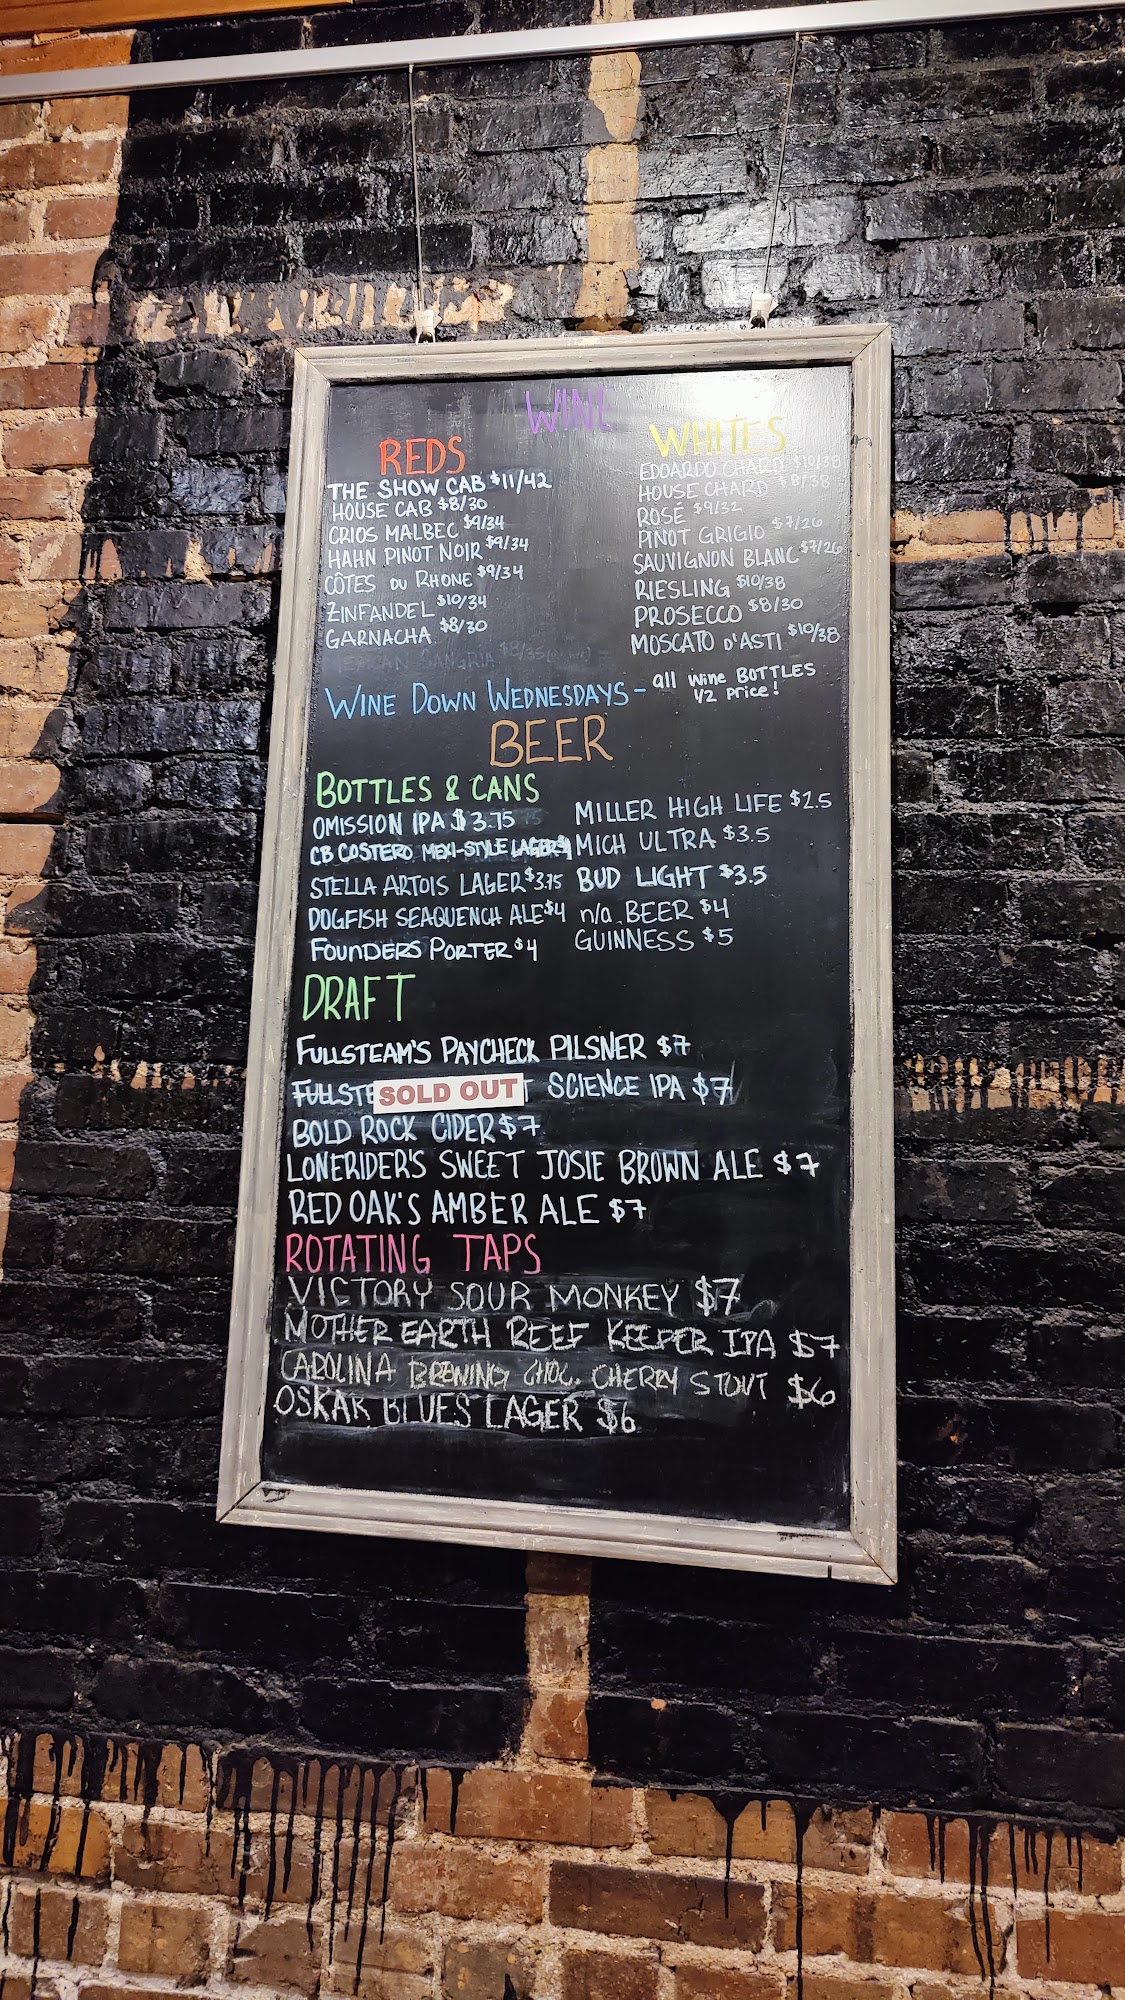 WINE
REDS
THE SHOW CAB $11/42
HOUSE CAB $8/30
CRIOS MALBEC $9/34
HAHN PINOT NOIR $9/34
CÔTES DU RHONE $9/34
ZINFANDEL $10/34
GARNACHA $8/30
MEXICAN SANGRIA $8/35
WHITES
EDOARDO CHARD $10/38
HOUSE CHARD $8/38
ROSÉ $9/32
PINOT GRIGIO $7/26
SAUVIGNON BLANC $7/26
RIESLING $10/38
PROSECCO $8/30
MOSCATO D'ASTI $10/38
WINE DOWN WEDNESDAYS - all wine BOTTLES
1/2 price!
BEER
BOTTLES & CANS
OMISSION IPA $3.75
CB COSTERO MEXI-STYLE LAGER $4
STELLA ARTOIS LAGER $3.75
DOGFISH SEAQUENCH ALE $4
FOUNDERS PORTER $4
MILLER HIGH LIFE $2.5
MICH ULTRA $3.5
BUD LIGHT $3.5
n/a BEER $4
GUINNESS $5
DRAFT
FULLSTEAM'S PAYCHECK PILSNER $7
FULLSTE SOLD OUT T SCIENCE IPA $7
BOLD ROCK CIDER $7
LONERIDER'S SWEET JOSIE BROWN ALE $7
RED OAK'S AMBER ALE $7
ROTATING TAPS
VICTORY SOUR MONKEY $7
MOTHER EARTH REEF KEEPER IPA $7
CAROLINA BREWING CHOC. CHERRY STOUT $6
OSKAR BLUES LAGER $6